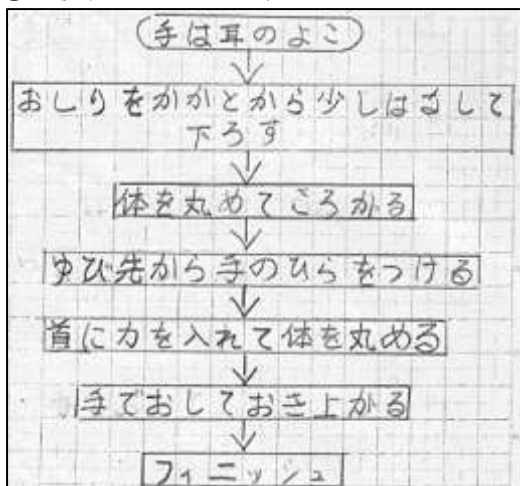 手は耳のよこ
おしりをかかとから少しはなして
下ろす
体を丸めてころがる
ゆび先から手のひらをつける
首に力を入れて体を丸める
手でおしておき上がる
フィニッシュ